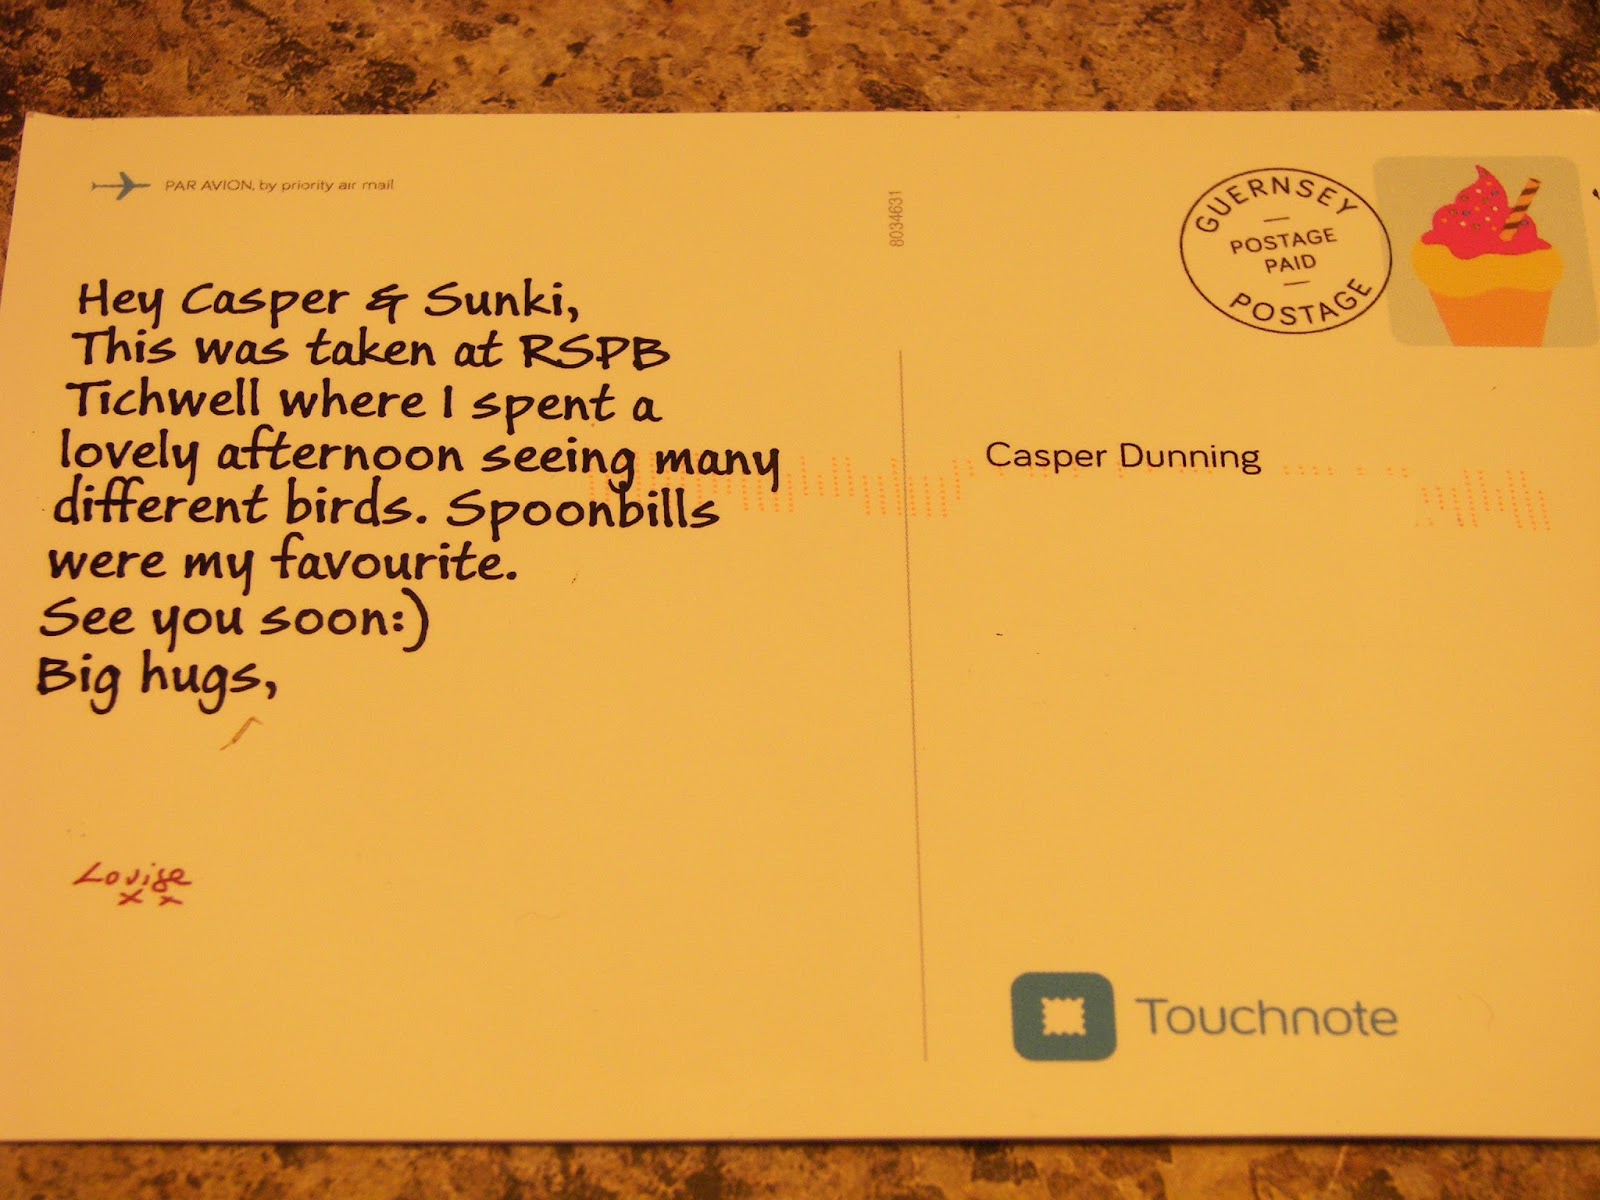 PAR AVION, by priority air mail
8034631
GUERNSEY
POSTAGE
PAID
POSTAGE
Hey Casper & Sunki,
This was taken at RSPB
Tichwell where I spent a
lovely afternoon seeing many
different birds. Spoonbills
were my favourite.
See you soon:)
Big hugs,
Louise
x x
Casper Dunning
Touchnote